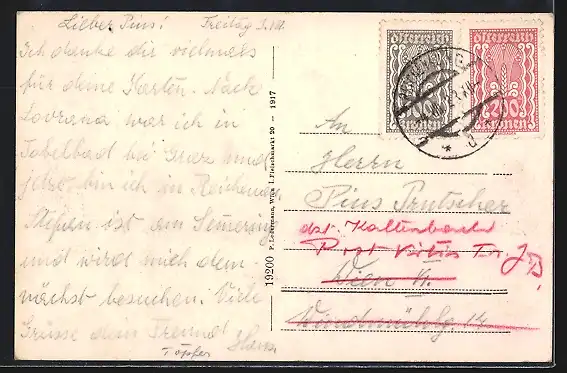 Lieber Pius! Freitag
Ich danke dir vielmals
für deine Karten. Nach
Lovrana war ich in
Tobelbad bei Graz und
jetzt bin ich in Reichenau
Stefen ist am Semering
und wird mich dem
nächst besuchen. Viele
Grüsse dein Freund
Hans
Töpfer
19200 P. Ledermann, Wien I. Fleischmarkt 20 - 1917
österreich
österreich
200
Kronen
An
Herrn
Pius Prutscher
dzt. Kaltenbach
Post
Wien VI.
Windmühlg 14